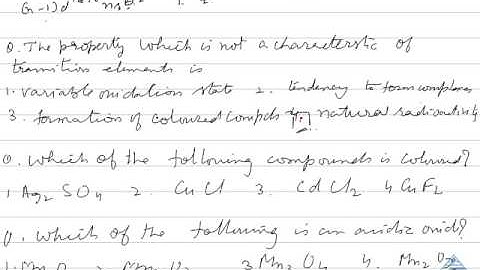 (n-1)d
Q. The property which is not a characterstic of
transition elements is
1. variable oxidation state 2. tendency to form complexes
3. formation of coloured compds 4. natural radioactivity
Q. which of the following compounds is coloured?
1. Ag2 SO4 2. CuCl 3. CdCl2 4. CuF2
Q. which of the following is an acidic oxid?
3 Mn3 O4 4. Mn2 O7